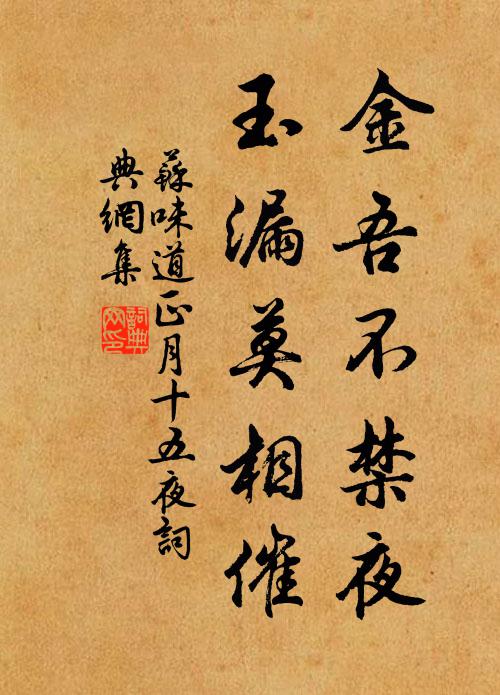 金吾不禁夜
玉漏莫相催
蘇味道正月十五夜詞
典網集
詞典網印